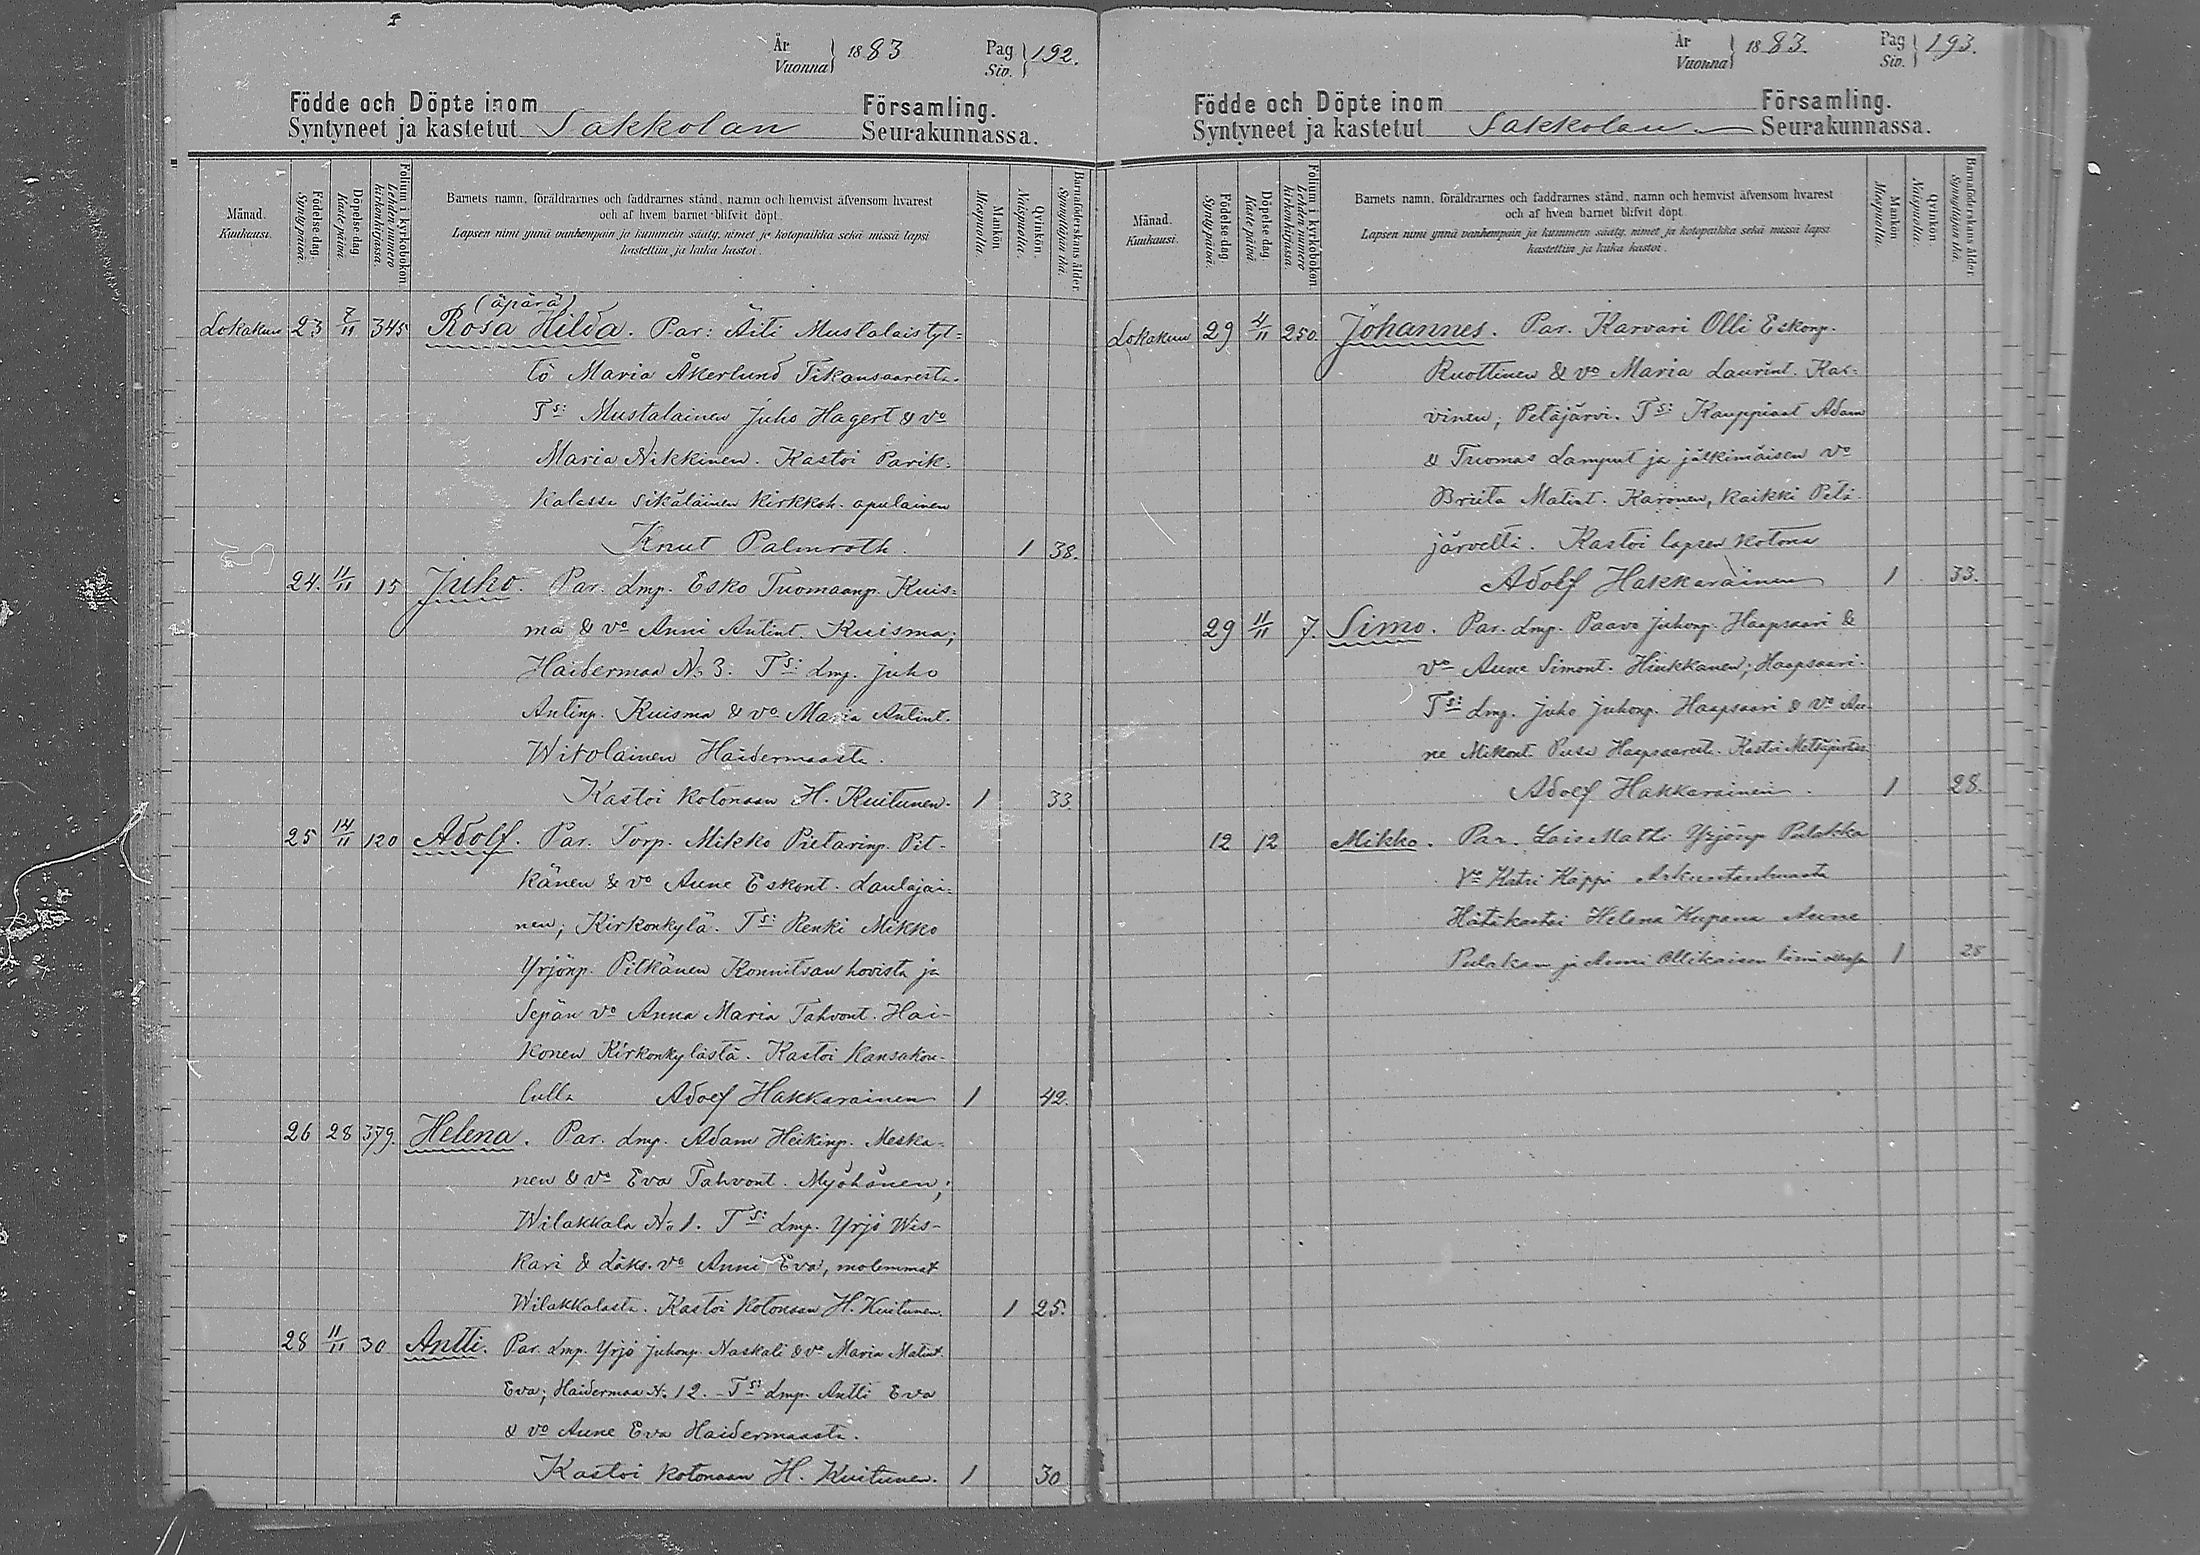 År
Vuonna } 1883 Pag
Siv. } 192.
Födde och Döpte inom Församling.
Syntyneet ja kastetut Sakkolan Seurakunnassa.
Månad.
Kuukausi.
Födelse dag.
Synty päivä.
Döpelse dag
Kaste päivä.
Folium i kyrkobokon.
Lehden numero kirkonkirjassa.
Barnets namn, föräldrarnes och faddrarnes stånd, namn och hemvist äfvensom hvarest
och af hvem barnet blifvit döpt.
Lapsen nimi ynnä vanhempain ja kummein sääty, nimet ja kotopaikka sekä missä lapsi
kastettiin ja kuka kastoi.
Mankön
Miespuolia.
Qvinkön.
Naispuolia.
Barnaföderskans ålder.
Synnyttäjän ikä.
(äpärä)
Lokakuu 23 7/11 345 Rosa Hilda. Par: Äiti Mustalaistyt-
tö Maria Åkerlund Tikansaaresta.
Tsi Mustalainen Juho Hagert & vo
Maria Nikkinen. Kastoi Parik-
kalassa sikäläinen kirkkoh. apulainen
Knut Palmroth. 1 38.
24. 11/11 15 Juho. Par. Lmp. Esko Tuomaanp. Kuis-
ma & vo Anni Antint. Kuisma;
Haidermaa No 3. Tsi Lmp. Juho
Antinp. Kuisma & vo Maria Antint.
Wirolainen Haidermaasta.
Kastoi kotonaan H. Kuitunen. 1 33.
25 14/11 120 Adolf. Par. Torp. Mikko Pietarinp. Pit-
känen & vo Aune Eskont. Laulajai-
nen; Kirkonkylä. Tsi Renki Mikko
Yrjönp. Pitkänen Konnitsan hovista ja
Sepän vo Anna Maria Tahvont. Hai-
konen Kirkonkylästä. Kastoi kansakou-
lulla Adolf Hakkarainen 1 42.
26 28 379. Helena. Par. Lmp. Adam Heikinp. Meska-
nen & vo Eva Tahvont. Myöhänen;
Wilakkala No 1. Tsi Lmp. Yrjö Wis-
kari & Läks. vo Anni Eva, molemmat
Wilakkalasta. Kastoi kotonaan H. Kuitunen. 1 25.
28 11/11 30 Antti. Par. Lmp. Yrjö Juhonp. Naskali & vo Maria Matint.
Eva; Haidermaa No 12. Tsi Lmp. Antti Eva
& vo Aune Eva Haidermaasta.
Kastoi kotonaan H. Kuitunen. 1 30
År
Vuonna } 1883. Pag
Siv. } 193.
Födde och Döpte inom Församling.
Syntyneet ja kastetut Sakkolan Seurakunnassa.
Månad.
Kuukausi.
Födelse dag.
Synty päivä.
Döpelse dag
Kaste päivä.
Folium i kyrkobokon.
Lehden numero kirkonkirjassa.
Barnets namn, föräldrarnes och faddrarnes stånd, namn och hemvist äfvensom hvarest
och af hvem barnet blifvit döpt.
Lapsen nimi ynnä vanhempain ja kummein sääty, nimet ja kotopaikka sekä missä lapsi
kastettiin ja kuka kastoi.
Mankön
Miespuolia.
Qvinkön.
Naispuolia.
Barnaföderskans ålder.
Synnyttäjän ikä.
Lokakuu 29 4/11 250. Johannes. Par. Karvari Olli Eskonp.
Ruottinen & vo Maria Laurint. Kar-
vinen; Petäjärvi. Tsi Kauppiaat Adam
& Tuomas Lamput ja jälkimäisen vo
Briita Matint. Karonen, kaikki Petä-
järveltä. Kastoi lapsen kotona
Adolf Hakkarainen 1 33.
29 11/11 7. Simo. Par. Lmp. Paavo Juhonp. Haapsaari &
vo Aune Simont. Hinkkanen; Haapsaari.
Tsi Lmp. Juho Juhonp. Haapsaari & vo Au-
ne Mikont. Pusa Haapsaarest. Kastoi Metsäpirtis
Adolf Hakkarainen. 1 28.
12 12 Mikko. Par. Lois Matti Yrjönp Pulakka
Vo Katri Käppi
Hätäkastoi Helena Kupana Aune
Pulakan ja Anni Ollikaisen läsnä ollessa 1 28